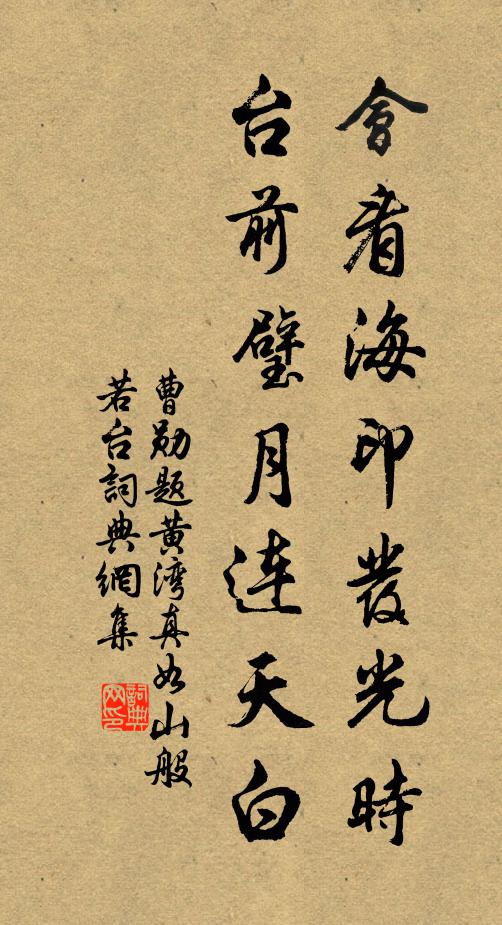 會看海印發光時
台前璧月連天白
曹勛題黄湾真如山般
若台詞典網集
詞典
网印